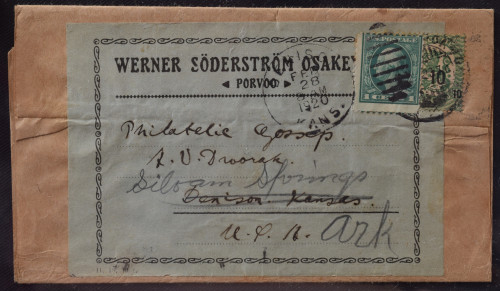 WERNER SÖDERSTRÖM OSAKEY
PORVOO
FEB
28
1920
KANS.
10
10
Philatelic Gossip,
A. V. Dvorak,
Siloam Springs
Denison Kansas.
U. S. A.
Ark